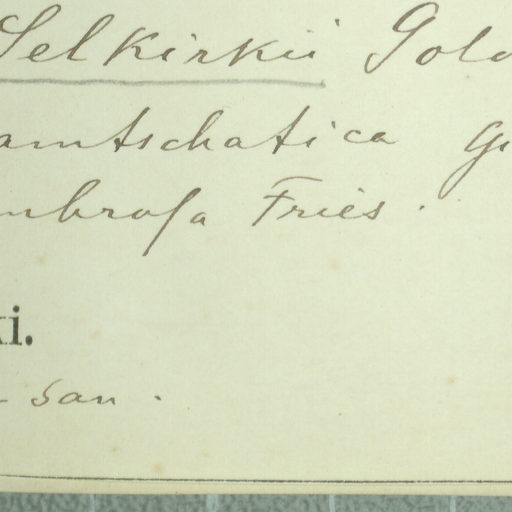 Selkirkii Gold
amtschatica Gi
mbrosa Fries.
ki.
- san.